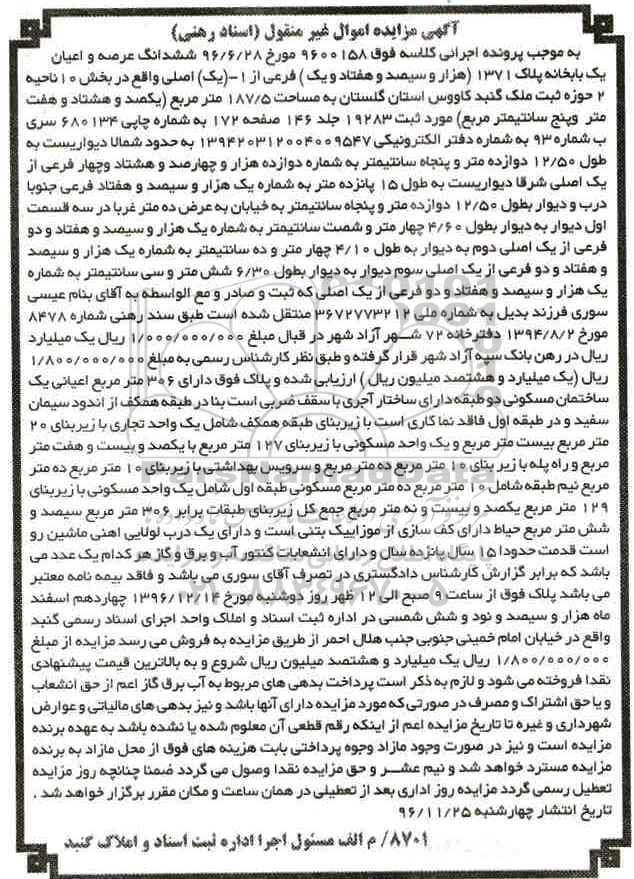 آگهی مزایده اموال غیر منقول (اسناد رهنی)
به موجب پرونده اجرائی کلاسه فوق ۹۶۰۰۱۵۸ مورخ ۹۶/۶/۲۸ ششدانگ عرصه و اعیان
یک بابخانه پلاک ۱۳۷۱ (هزار و سیصد و هفتاد و یک ) فرعی از ۱-(یک) اصلی واقع در بخش ۱۰ ناحیه
۲ حوزه ثبت ملک گنبد کاووس استان گلستان به مساحت ۱۸۷/۵ متر مربع (یکصد و هشتاد و هفت
متر وپنج سانتیمتر مربع) مورد ثبت ۱۹۲۸۳ جلد ۱۴۶ صفحه ۱۷۲ به شماره چاپی ۶۸۰۱۳۴ سری
ب شماره ۹۳ به شماره دفتر الکترونیکی ۱۳۹۴۲۰۳۱۲۰۰۴۰۰۹۵۴۷ به حدود شمالا دیواریست به
طول ۱۲/۵۰ دوازده متر و پنجاه سانتیمتر به شماره دوازده هزار و چهارصد و هشتاد وچهار فرعی از
یک اصلی شرقا دیواریست به طول ۱۵ پانزده متر به شماره یک هزار و سیصد و هفتاد فرعی جنوبا
درب و دیوار بطول ۱۲/۵۰ دوازده متر و پنجاه سانتیمتر به خیابان به عرض ده متر غربا در سه قسمت
اول دیوار به دیوار بطول ۴/۶۰ چهار متر و شصت سانتیمتر به شماره یک هزار و سیصد و هفتاد و دو
فرعی از یک اصلی دوم به دیوار به طول ۴/۱۰ چهار متر و ده سانتیمتر به شماره یک هزار و سیصد
و هفتاد و دو فرعی از یک اصلی سوم دیوار به دیوار بطول ۶/۳۰ شش متر و سی سانتیمتر به شماره
یک هزار و سیصد و هفتاد و دو فرعی از یک اصلی که ثبت و صادر و مع الواسطه به آقای بنام عیسی
سوری فرزند بدیل به شماره ملی ۳۶۷۲۷۷۳۲۱۲ منتقل شده است طبق سند رهنی شماره ۸۴۷۸
مورخ ۱۳۹۴/۸/۲ دفترخانه ۷۲ شهر آزاد شهر در قبال مبلغ ۱/۰۰۰/۰۰۰/۰۰۰ ریال یک میلیارد
ریال در رهن بانک سپه آزاد شهر قرار گرفته و طبق نظر کارشناس رسمی به مبلغ ۱/۸۰۰/۰۰۰/۰۰۰
ریال (یک میلیارد و هشتصد میلیون ریال ) ارزیابی شده و پلاک فوق دارای ۳۰۶ متر مربع اعیانی یک
ساختمان مسکونی دو طبقه دارای ساختار آجری با سقف ضربی است بنا در طبقه همکف از اندود سیمان
سفید و در طبقه اول فاقد نما کاری است با زیربنای طبقه همکف شامل یک واحد تجاری با زیربنای ۲۰
متر مربع بیست متر مربع و یک واحد مسکونی با زیربنای ۱۲۷ متر مربع با یکصد و بیست و هفت متر
مربع و راه پله با زیر بنای ۱۰ متر مربع ده متر مربع و سرویس بهداشتی با زیربنای ۱۰ متر مربع ده متر
مربع نیم طبقه شامل ۱۰ متر مربع ده متر مربع مسکونی طبقه اول شامل یک واحد مسکونی با زیربنای
۱۲۹ متر مربع یکصد و بیست و نه متر مربع جمع کل زیربنای طبقات برابر ۳۰۶ متر مربع سیصد و
شش متر مربع حیاط دارای کف سازی از موزاییک بتنی است و دارای یک درب لولایی اهنی ماشین رو
است قدمت حدودا ۱۵ سال پانزده سال و دارای انشعابات کنتور آب و برق و گاز هر کدام یک عدد می
باشد که برابر گزارش کارشناس دادگستری در تصرف آقای سوری می باشد و فاقد بیمه نامه معتبر
می باشد پلاک فوق از ساعت ۹ صبح الی ۱۲ ظهر روز دوشنبه مورخ ۱۳۹۶/۱۲/۱۴ چهاردهم اسفند
ماه هزار و سیصد و نود و شش شمسی در اداره ثبت اسناد و املاک واحد اجرای اسناد رسمی گنبد
واقع در خیابان امام خمینی جنوبی جنب هلال احمر از طریق مزایده به فروش می رسد مزایده از مبلغ
۱/۸۰۰/۰۰۰/۰۰۰ ریال یک میلیارد و هشتصد میلیون ریال شروع و به بالاترین قیمت پیشنهادی
نقدا فروخته می شود و لازم به ذکر است پرداخت بدهی های مربوط به آب برق گاز اعم از حق انشعاب
و یا حق اشتراک و مصرف در صورتی که مورد مزایده دارای آنها باشد و نیز بدهی های مالیاتی و عوارض
شهرداری و غیره تا تاریخ مزایده اعم از اینکه رقم قطعی آن معلوم شده یا نشده باشد به عهده برنده
مزایده است و نیز در صورت وجود مازاد وجوه پرداختی بابت هزینه های فوق از محل مازاد به برنده
مزایده مسترد خواهد شد و نیم عشر و حق مزایده نقدا وصول می گردد ضمنا چنانچه روز مزایده
تعطیل رسمی گردد مزایده روز اداری بعد از تعطیلی در همان ساعت و مکان مقرر برگزار خواهد شد .
تاریخ انتشار چهارشنبه ۹۶/۱۱/۲۵
۸۷۰۱/ م الف مسئول اجرا اداره ثبت اسناد و املاک گنبد